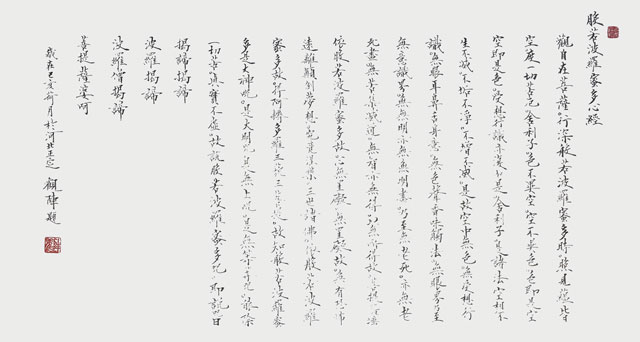 般若波羅蜜多心經
觀自在菩薩行深般若波羅蜜多時照見蘊皆
空度一切苦厄舍利子色不異空空不異色色即是空
空即是色受想行識亦復如是舍利子是諸法空相不
生不滅不垢不淨不增不減是故空中無色無受想行
識無眼耳鼻舌身意無色聲香味觸法無眼界乃至
無意識界無無明亦無無明盡乃至無老死亦無老
死盡無苦集滅道無智亦無得以無所得故菩提薩埵
依般若波羅蜜多故心無罣礙無罣礙故無有恐怖
遠離顛倒夢想究竟涅槃三世諸佛依般若波羅
蜜多故得阿耨多羅三藐三菩提故知般若波羅蜜
多是大神咒是大明咒是無上咒是無等等咒能除
一切苦真實不虛故說般若波羅蜜多咒即說咒曰
揭諦揭諦
波羅揭諦
波羅僧揭諦
菩提薩婆呵
歲在己亥 月於河北正定 觀 題